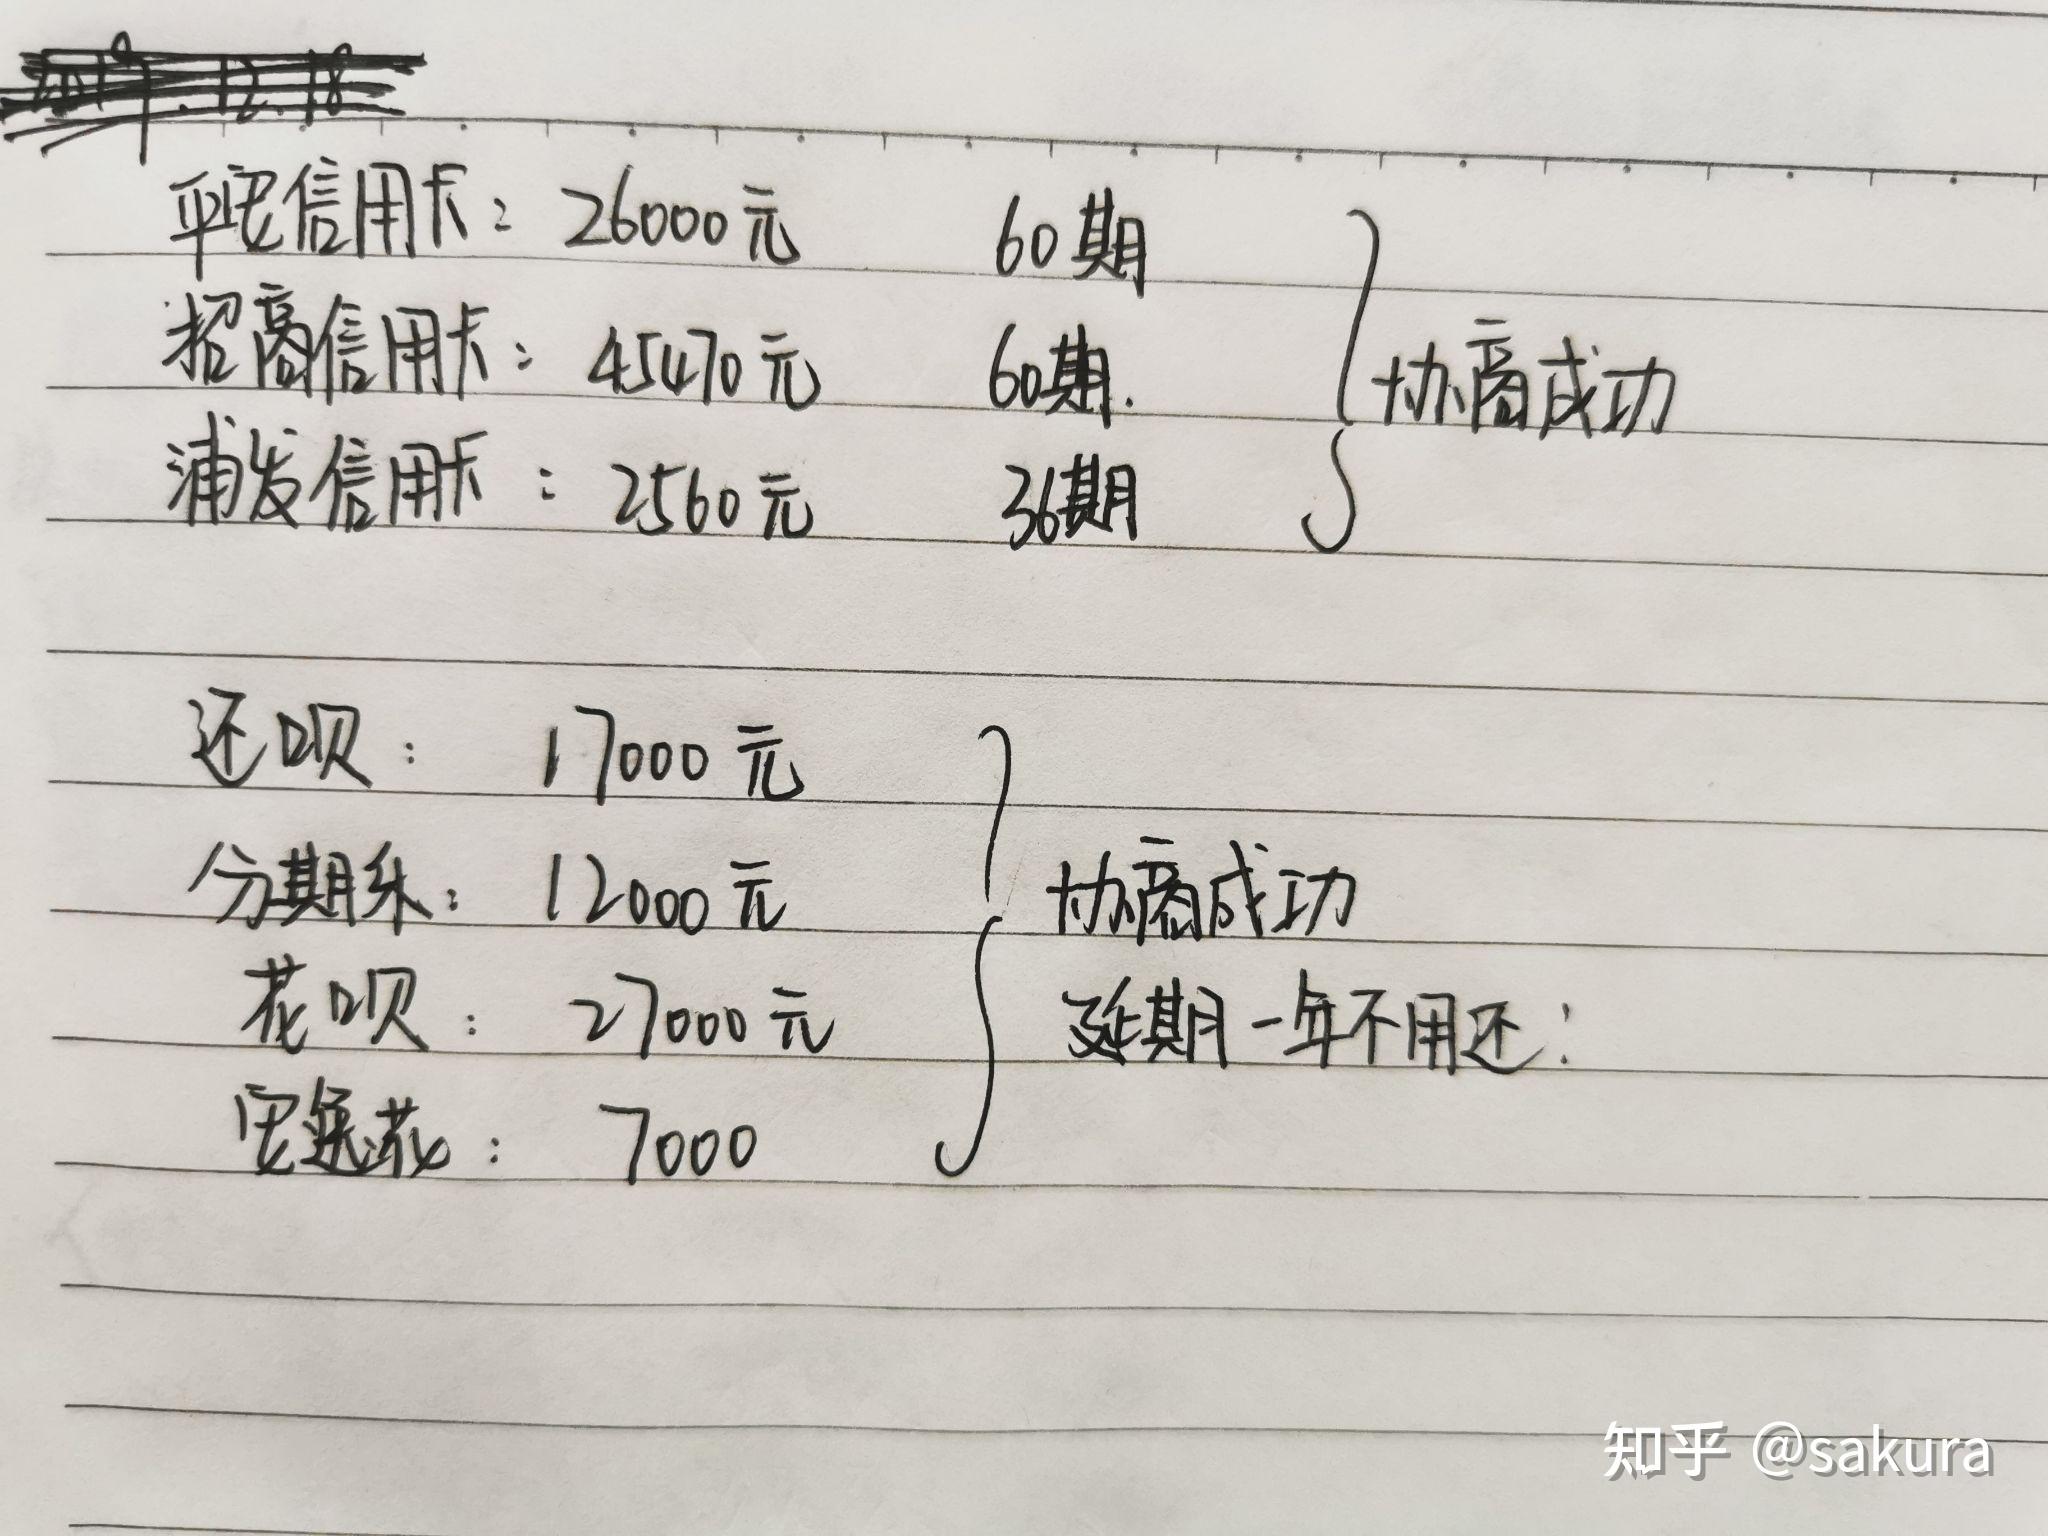 2019.12.18
平安信用卡：26000元 60期
招商信用卡：45470元 60期.
浦发信用卡：2560元 36期
协商成功
还呗：17000元
分期乐：12000元
花呗：27000元
安逸花：7000
协商成功
延期一年不用还！
知乎 @sakura